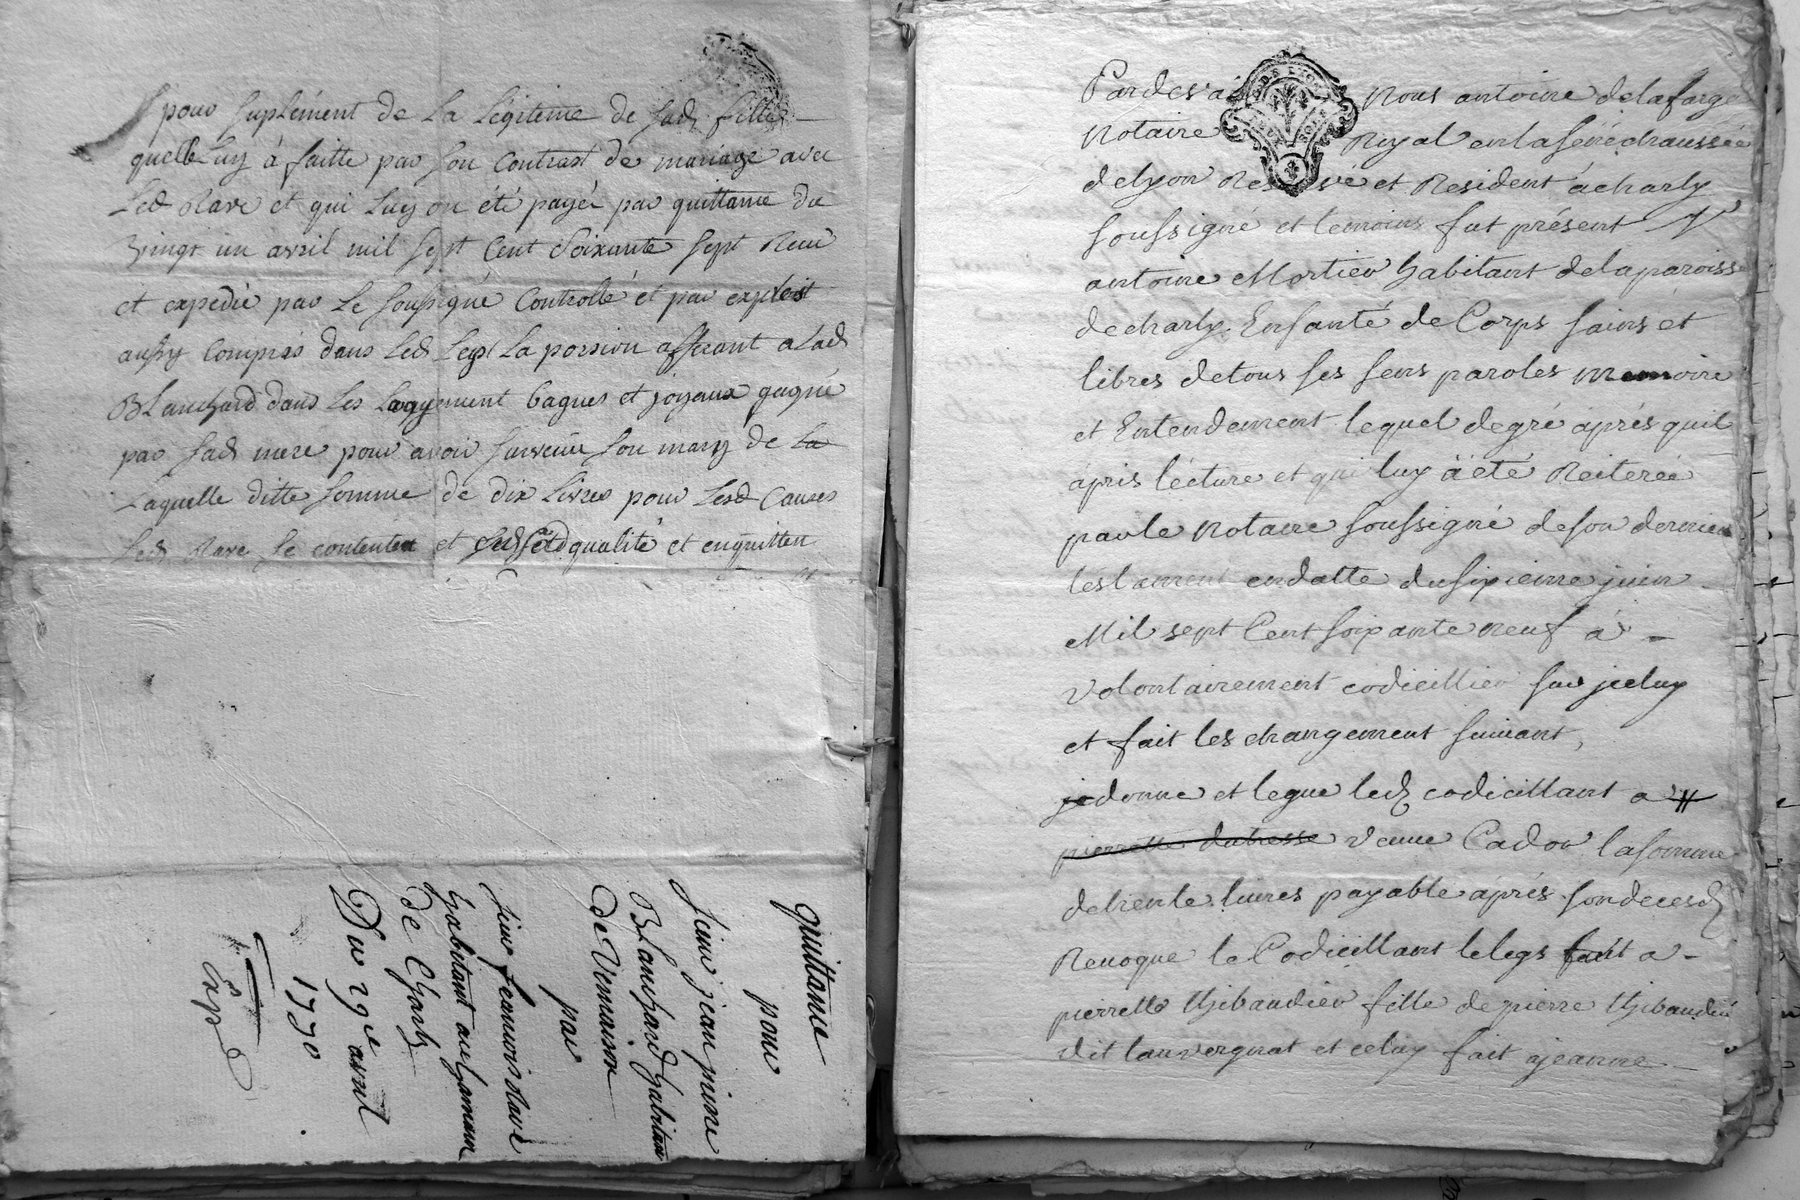 pour suplément de La Légitime de sad fille
quelle luy à faitte par son Contrast de mariage avec
Led Rave et qui Luy on été payéé par quittance du
vingt un avril mil sept Cent Soixante sept Reçu
et expedié par Le soussigné Controllé et par exploit
aussy Compris dans Led Legs La portion afferant a Lad
BLanchard dans Les Logement bagues et joyaux gagné
par sad mere pour avoir survecu son mary de la
Laquelle ditte somme de dix Livres pour Lesd Causes
Led Rave se contente et qualité et enquitten
quittance
pour
sieur jean pierre
BLanchard habitant
de Vernaison
par
sieur francois Rave
habitant au hameau
de Charly
Du 29e avril
1770
Expd
Pardevant Nous antoine delafarge
Notaire Royal en la sénéchaussée
de lyon Reservé et Resident à charly
soussigné et temoins fut présent Sr
antoine Mortier habitant de la paroisse
de charly. En santé de Corps sains et
libres de tous ses sens paroles memoire
et Entendement lequel de gré áprés quil
ápris lécture et qui luy à été Reiterée
par le Notaire soussigné de son dernier
testament en datte du sixieme juin
Mil sept Cent soixante neuf á
volontairement codicillier sur jceluy
et fait les changement suivant,
je donne et legue led codicillant a
pierrette dubresse veuve Cador la somme
de trente livres payable áprés son deces d
Revoque le Codicillant le legs fait a
pierrette thibaudier fille de pierre thibaudier
dit lauvergnat et celuy fait a jeanne